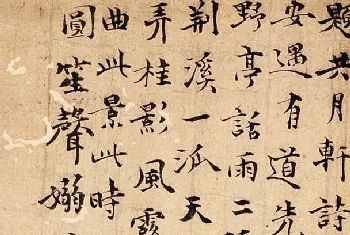 題共月軒詩
安遇有道先
野亭話雨二
荆溪一派天
弄桂影風露
曲此景此時
圓笙聲嫋